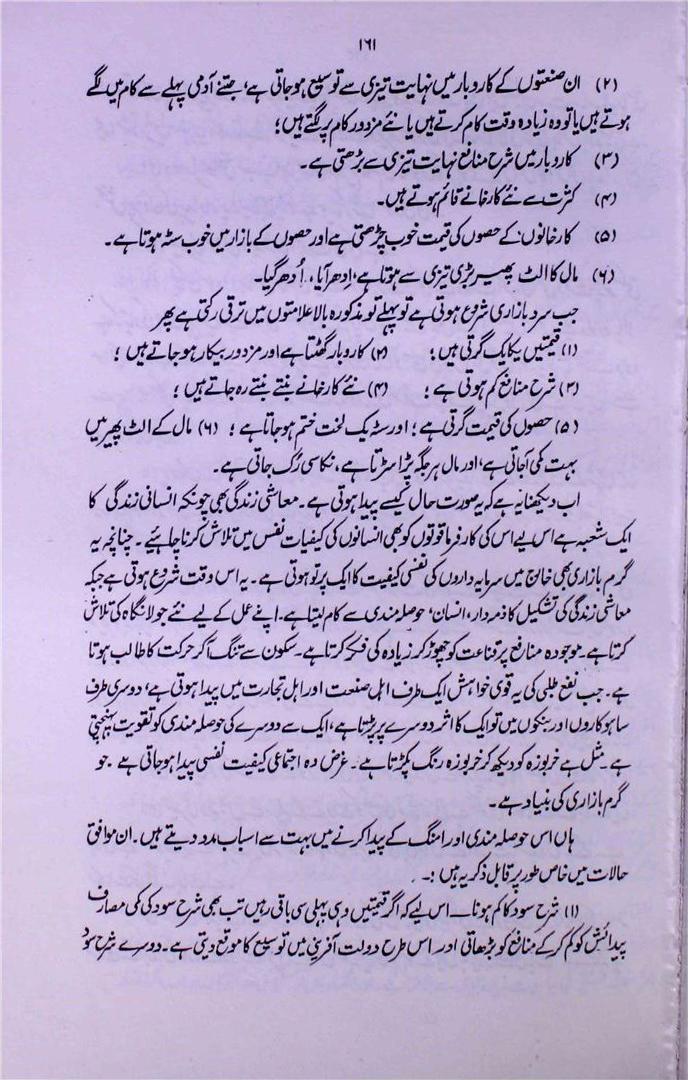 ۱۶۱
(۲) ان صنعتوں کے کاروبار میں نہایت تیزی سے توسیع ہو جاتی ہے، جتنے آدمی پہلے سے کام میں لگے
ہوتے ہیں یا تو وہ زیادہ وقت کام کرتے ہیں یا نئے مزدور کام پر لگتے ہیں؛
(۳) کاروبار میں شرح منافع نہایت تیزی سے بڑھتی ہے۔
(۴) کثرت سے نئے کارخانے قائم ہوتے ہیں۔
(۵) کارخانوں کے حصوں کی قیمت خوب چڑھتی ہے اور حصوں کے بازار میں خوب سٹہ ہوتا ہے۔
(۶) مال کا الٹ پھیر بڑی تیزی سے ہوتا ہے، اِدھر آیا، اُدھر گیا۔
جب سرد بازاری شروع ہوتی ہے تو پہلے تو مذکورہ بالا علامتوں میں ترقی رکتی ہے پھر
(۱) قیمتیں یکایک گرتی ہیں؛ (۲) کاروبار گھٹتا ہے اور مزدور بیکار ہو جاتے ہیں؛
(۳) شرح منافع کم ہوتی ہے؛ (۴) نئے کارخانے بنتے بنتے رہ جاتے ہیں؛
(۵) حصوں کی قیمت گرتی ہے؛ اور سٹہ یک لخت ختم ہو جاتا ہے؛ (۶) مال کے الٹ پھیر میں
بہت کمی آجاتی ہے، اور مال ہر جگہ پڑا سڑتا ہے، نکاسی رُک جاتی ہے۔
اب دیکھنا یہ ہے کہ یہ صورت حال کیسے پیدا ہوتی ہے۔ معاشی زندگی بھی چونکہ انسانی زندگی کا
ایک شعبہ ہے اس لیے اس کی کارفرما قوتوں کو بھی انسانوں کی کیفیات نفس میں تلاش کرنا چاہئیے۔ چنانچہ یہ
گرم بازاری بھی خارج میں سرمایہ داروں کی نفسی کیفیت کا ایک پرتو ہوتی ہے۔ یہ اس وقت شروع ہوتی ہے جبکہ
معاشی زندگی کی تشکیل کا ذمہ دار، انسان، حوصلہ مندی سے کام لیتا ہے۔ اپنے عمل کے لیے نئے جولانگاہ کی تلاش
کرتا ہے۔ موجودہ منافع پر قناعت کو چھوڑ کر زیادہ کی فکر کرتا ہے۔ سکون سے تنگ آکر حرکت کا طالب ہوتا
ہے۔ جب نفع طلبی کی یہ قوی خواہش ایک طرف اہل صنعت اور اہل تجارت میں پیدا ہوتی ہے، دوسری طرف
ساہوکاروں اور بنکوں میں تو ایک کا اثر دوسرے پر پڑتا ہے، ایک سے دوسرے کی حوصلہ مندی کو تقویت پہنچتی
ہے۔ مثل ہے خربوزہ کو دیکھ کر خربوزہ رنگ پکڑتا ہے۔ غرض وہ اجتماعی کیفیت نفسی پیدا ہو جاتی ہے۔ جو
گرم بازاری کی بنیاد ہے۔
ہاں اس حوصلہ مندی اور امنگ کے پیدا کرنے میں بہت سے اسباب مدد دیتے ہیں۔ ان موافق
حالات میں خاص طور پر قابل ذکر یہ ہیں:۔
(۱) شرح سود کا کم ہونا۔ اس لیے کہ اگر قیمتیں وہی پہلی سی باقی رہیں تب بھی شرح سود کی کمی مصارف
پیدائش کو کم کر کے منافع کو بڑھاتی اور اس طرح دولت آفرینی میں توسیع کا موقع دیتی ہے۔ دوسرے شرح سود